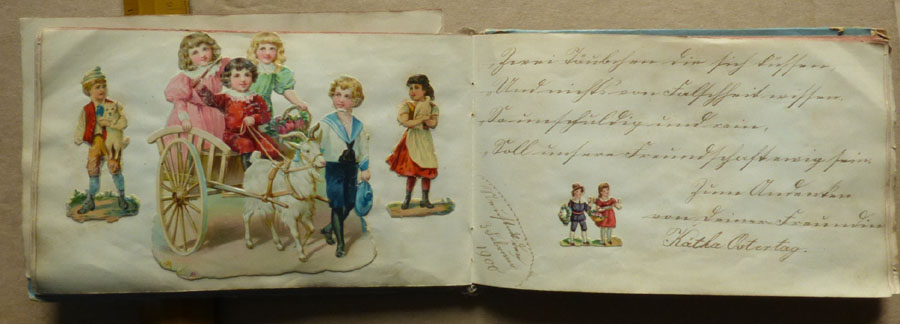 Zwei Täubchen die sich küssen,
Und nichts von Falschheit wissen,
So unschuldig und rein,
Soll unsere Freundschaft ewig sein.
Zum Andenken
von Deiner Freundin
Kätha Ostertag.